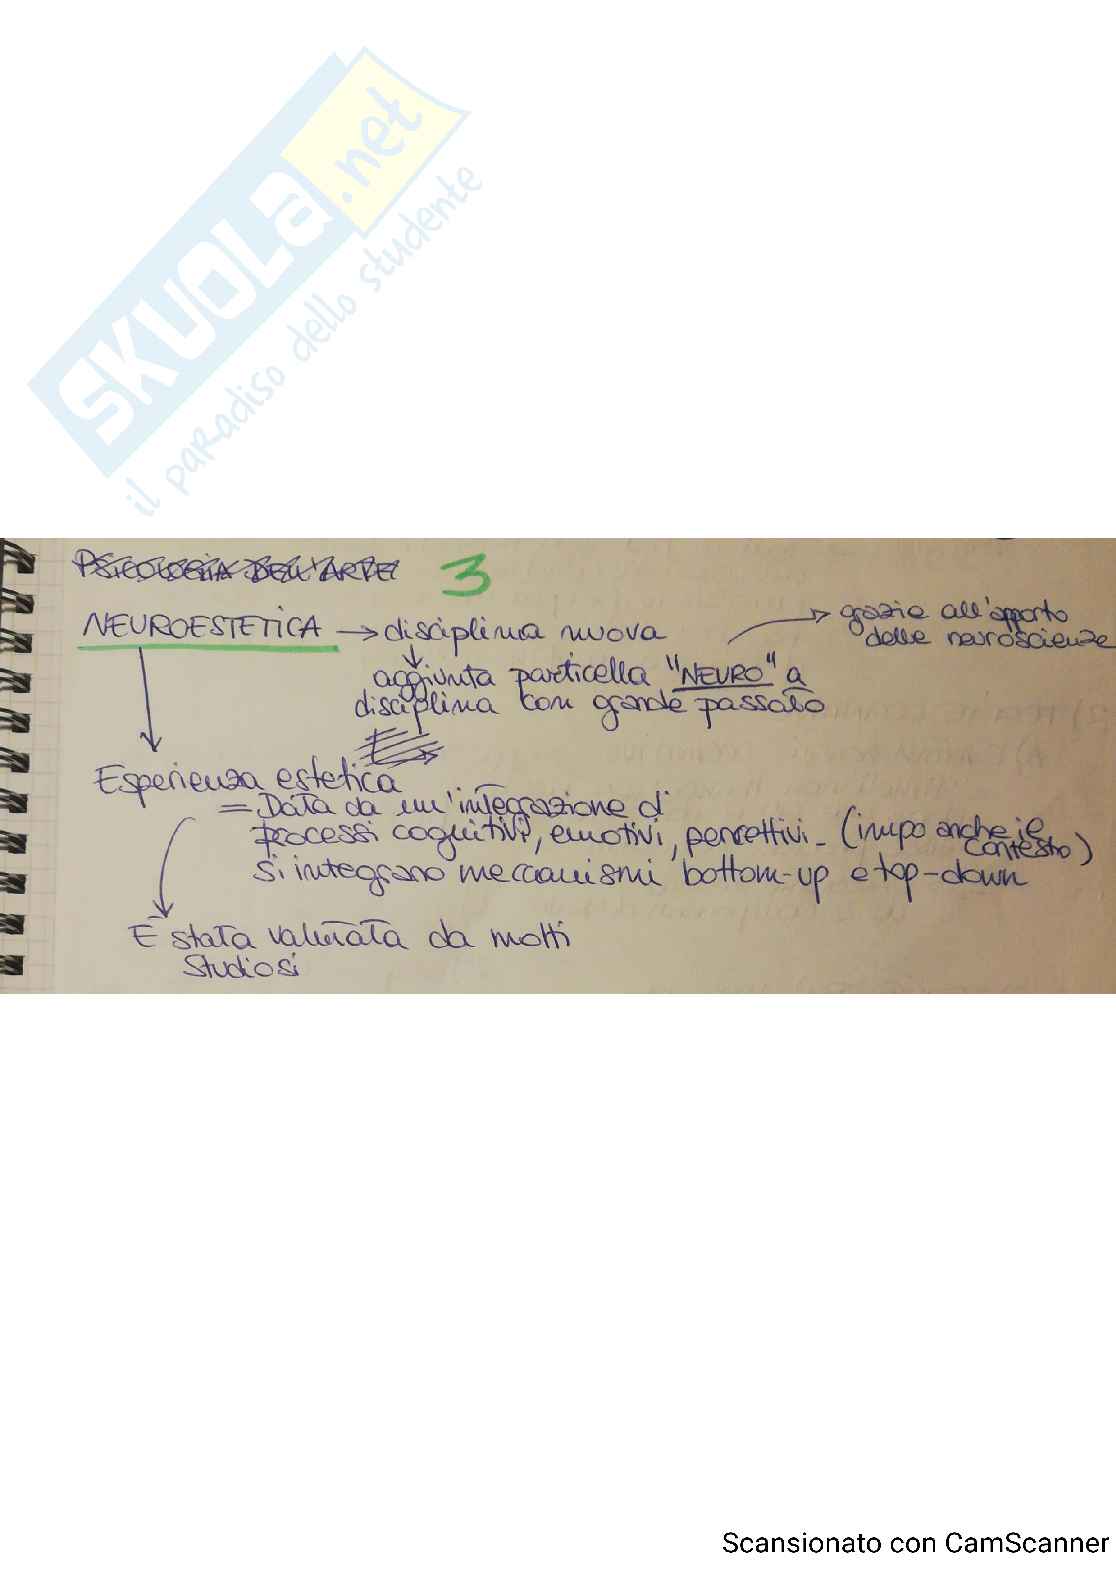 SKUOLA.net
il paradiso dello studente
PSICOLOGIA DELL'ARTE 3
NEUROESTETICA → disciplina nuova
grazie all'apporto
delle neuroscienze
aggiunta particella "NEURO" a
disciplina con grande passato
Esperienza estetica
= Data da un'integrazione di
processi cognitivi, emotivi, percettivi - (impo anche il
contesto)
Si integrano meccanismi bottom-up e top-down
È stata valutata da molti
Studiosi
Scansionato con CamScanner